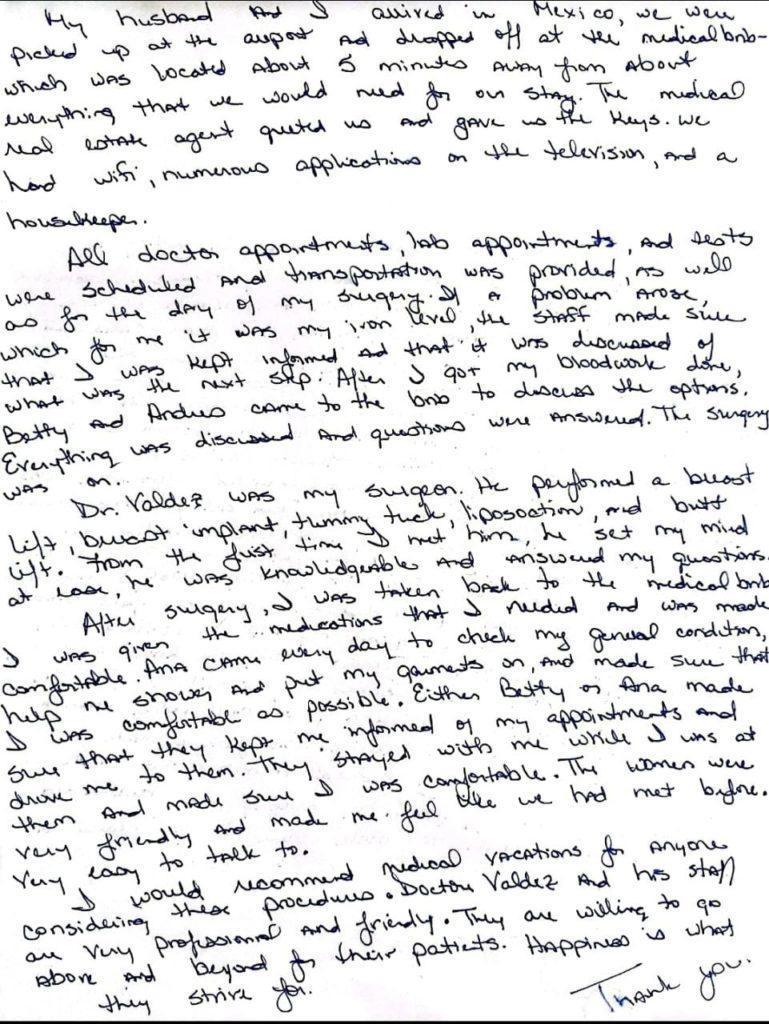 My husband And I arrived in Mexico, we were
picked up at the airport And dropped off at the medicalbnb-
which was located About 5 minutes away from About
everything that we would need for our stay. The medical
real estate agent greeted us and gave us the keys. We
had wifi, numerous applications on the television, and a
housekeeper.
All doctor appointments, lab appointments, and tests
were scheduled and transportation was provided, as well
as for the day of my surgery. If a problem arose,
which for me it was my iron level, the staff made sure
that I was kept informed and that it was discussed of
what was the next step. After I got my bloodwork done,
Betty and Andres came to the bnb to discuss the options.
Everything was discussed and questions were answered. The surgery
was on.
Dr. Valdez was my surgeon. He performed a breast
lift, breast implant, tummy tuck, liposoction, and butt
lift. From the first time I met him, he set my mind
at ease, he was knowledgeable and answered my questions.
After surgery, I was taken back to the medicalbnb
I was given the medications that I needed and was made
comfortable. Ana came every day to check my general condition,
help me shower and put my garments on, and made sure that
I was comfortable as possible. Either Betty or Ana made
sure that they kept me informed of my appointments and
drove me to them. They stayed with me while I was at
them and made sure I was comfortable. The women were
very friendly and made me feel like we had met before.
Very easy to talk to.
I would recommend medical vacations for anyone
considering these procedures. Doctor Valdez and his staff
are very professional and friendly. They are willing to go
above and beyond for their patients. Happiness is what
they strive for.
Thank you.